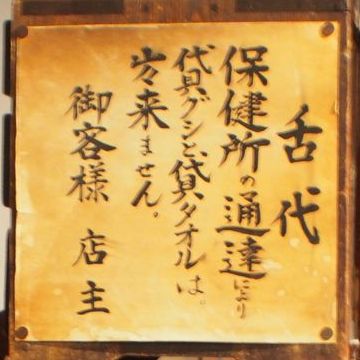 舌代
保健所の通達により
貸グシと貸タオルは。
出来ません。
御客様 店主